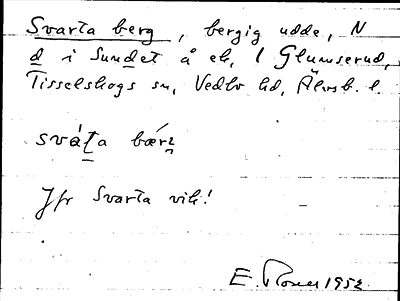 Svarta berg, bergig udde, N
d i Sundet å ek, 1 Glumserud,
Tisselskogs sn, Vedbo hd, Älvsb. l.
svát̲a bær
Jfr Svarta vik!
E. 1952